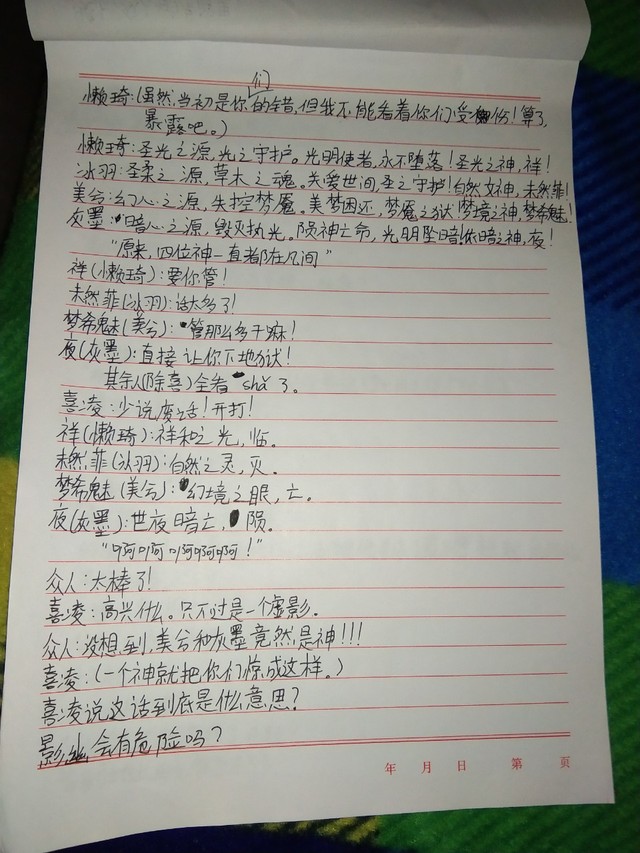 懒琦:(虽然,当初是你们的错,但我不能看着你们受伤!算了,
暴露吧。)
懒琦:圣光之源,光之守护。光明使者,永不堕落!圣光之神,祥!
冰羽:圣柔之源,草木之魂。关爱世间,圣之守护!自然女神,未然菲!
美兮:幻心之源,失控梦魇。美梦困还,梦魇之狱!梦境之神,梦希魅!
灰墨:暗心之源,毁灭执光。陨神亡命,光明坠暗!依暗之神,夜!
“原来,四位神一直都在凡间”
祥(懒琦):要你管!
未然菲(冰羽):话太多了!
梦希魅(美兮):管那么多干麻!
夜(灰墨):直接让你下地狱!
其余人(除喜)全者shǎ了。
喜凌:少说废话!开打!
祥(懒琦):祥和之光,临。
未然菲(冰羽):自然之灵,灭。
梦希魅(美兮):幻境之眼,亡。
夜(灰墨):世夜暗亡,陨。
“啊啊啊啊啊!”
众人:太棒了!
喜凌:高兴什么。只不过是一个虚影.
众人:没想到,美兮和灰墨竟然是神!!!
喜凌:(一个神就把你们惊成这样。)
喜凌说这话到底是什么意思?
影幽会有危险吗?
年 月 日 第 页